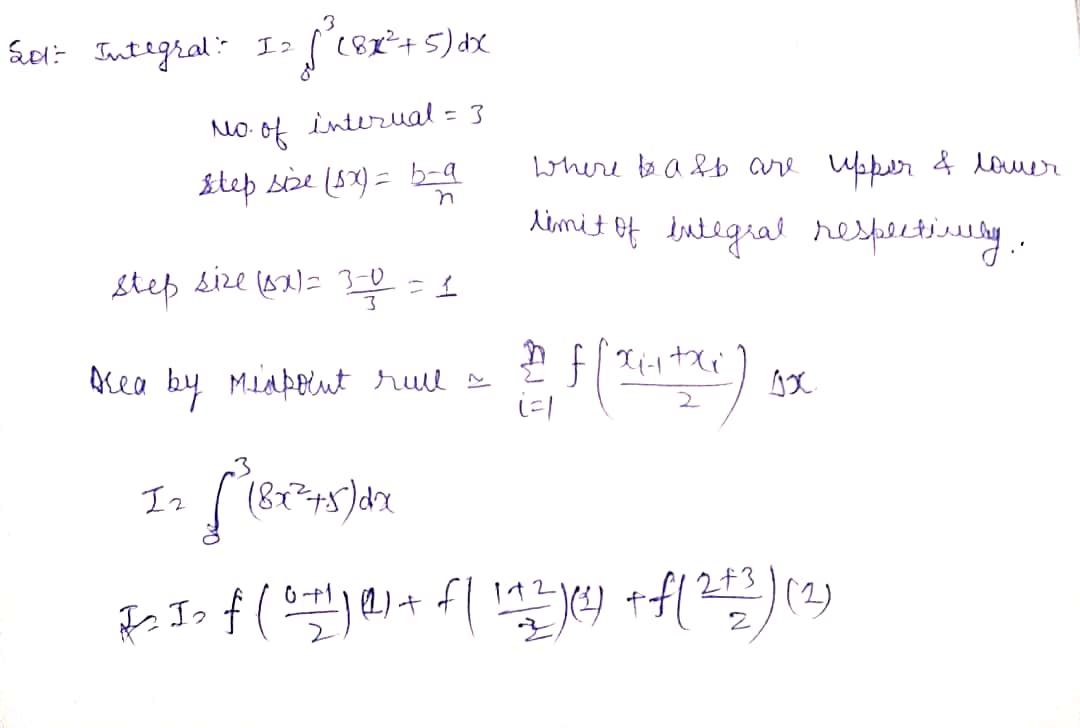 Sol:- Integral:- I = ∫₀³ (8x² + 5) dx
No. of interval = 3
step size (Δx) = (b-a)/n where a & b are upper & lower
limit of integral respectively.
step size (Δx) = (3-0)/3 = 1
Area by Midpoint rule ≃ Σ_{i=1}^{n} f((x_{i-1} + x_i)/2) Δx.
I = ∫₀³ (8x² + 5) dx
I = f((0+1)/2)(1) + f((1+2)/2)(1) + f((2+3)/2)(2)